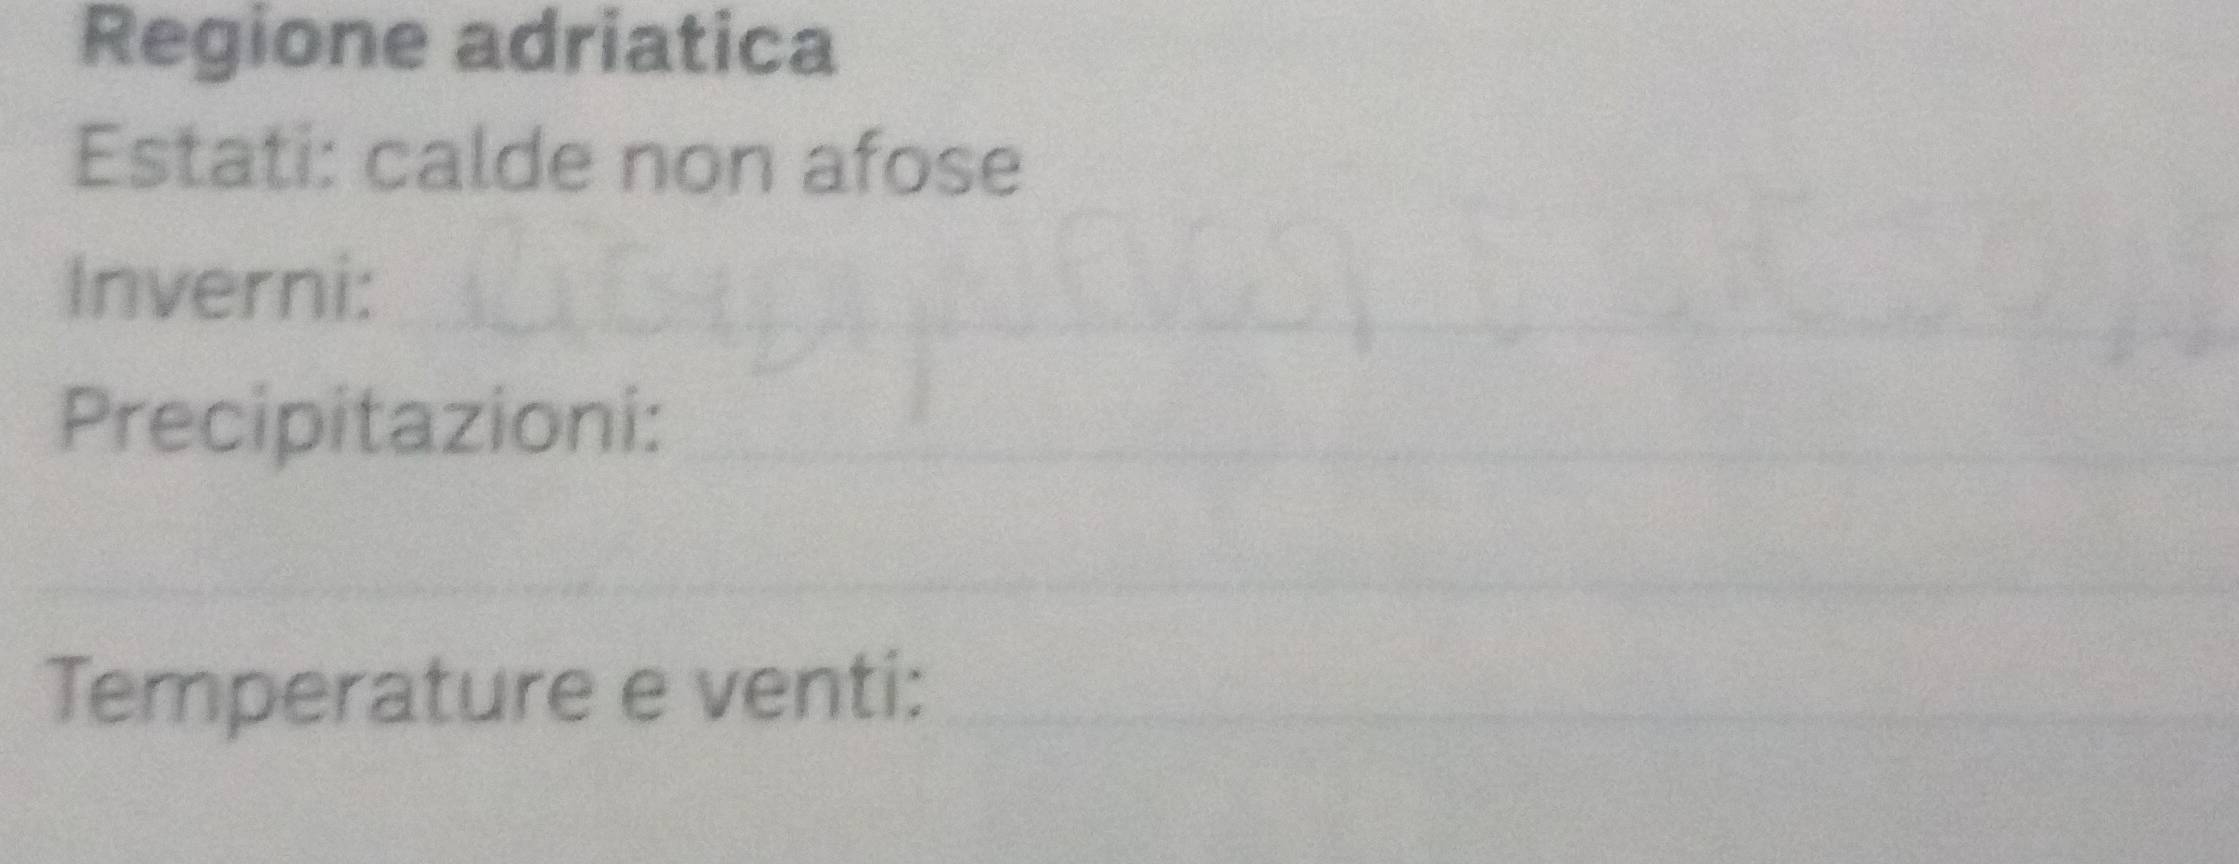 Regione adriatica
Estati: calde non afose
Inverni:
Precipitazioni:
Temperature e venti: